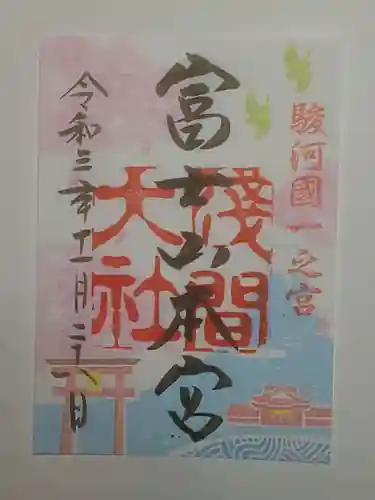 駿河國一之宮
富士山本宮
淺間大社
令和三年十一月二十八日